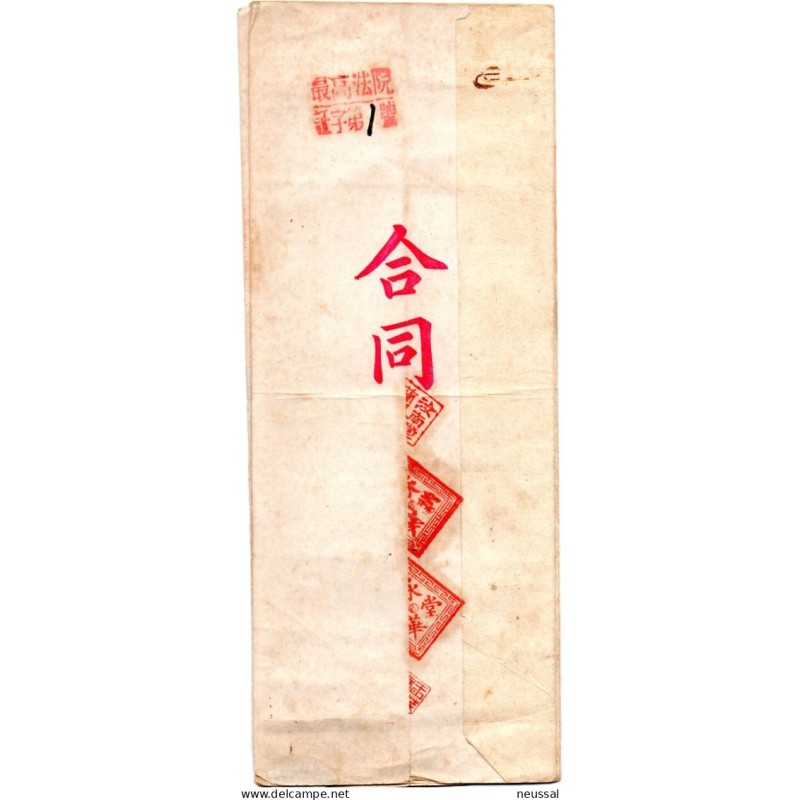 最高法院
証字第1號
合同
汝南堂
永華
永華堂
www.delcampe.net
neussal